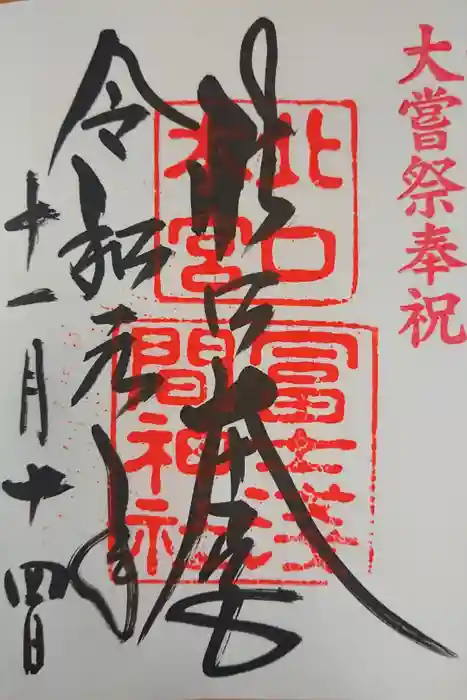 大嘗祭奉祝
北口本宮
冨士浅間神社
北口本宮
令和元年
十一月十四日